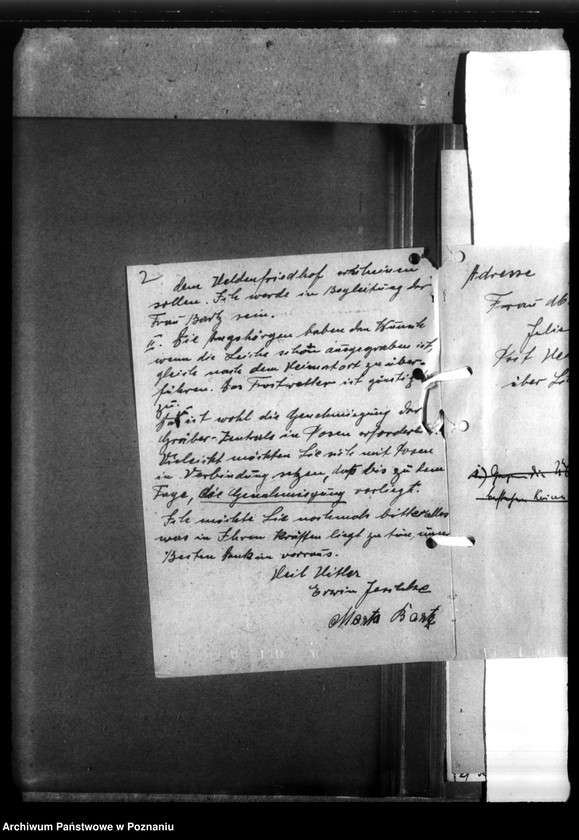 2
dem Heldenfriedhof erscheinen
sollen. Ich werde in Begleitung der
Frau Bartz sein.
II. Die Angehörgen haben den Wunsch
wenn die Leiche schon ausgegraben ist,
gleich nach dem Heimatort zu über-
führen. Das Frostwetter ist günstig
zu.
ist wohl die Genehmigung der
Gräber-Zentrale in Posen erforderl
Vieleicht möchten Sie sich mit Posen
in Verbindung setzen, daß bis zu dem
Tage, die Genehmigung vorliegt.
Ich möchte Sie nochmals bitten alles
was in Ihren Kräften liegt zu tun,
Besten Dank im vorraus.
Heil Hitler
Erwin Jeschke
Marta Bartz
Adresse
Frau
Julie
Post
über
Archiwum Państwowe w Poznaniu